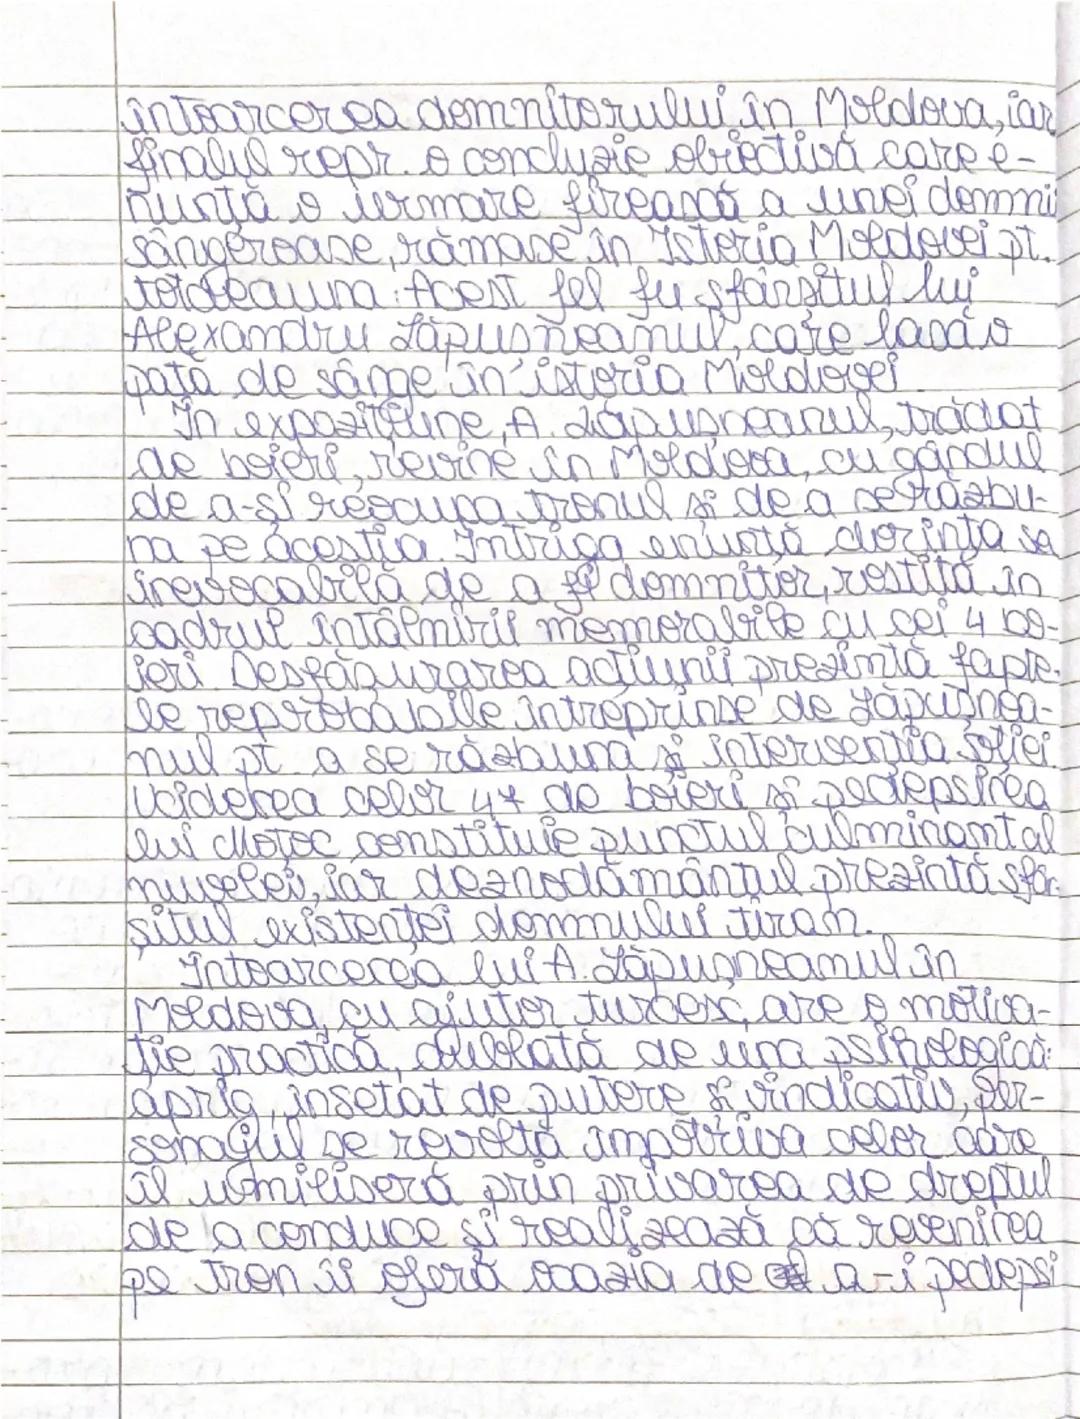 întoarcerea domnitorului în Moldova, iar
finalul repr. o concluzie obiectivă care e-
nunță o urmare firească a unei domnii
sângeroase, rămase în Istoria Moldovei pt.
totdeauna: Acest fel fu sfârșitul lui
Alexandru Lăpușneanul, care lasă o
pată de sânge în istoria Moldovei
În expozițiune, A. Lăpușneanul, trădat
de boieri, revine în Moldova, cu gândul
de a-și reocupa tronul și de a se răzbu-
na pe aceștia. Intriga enunță dorința sa
irevocabilă de a fi domnitor, rostită în
cadrul întâlnirii memorabile cu cei 4 bo-
ieri. Desfășurarea acțiunii prezintă fapte-
le reprobabile întreprinse de Lăpușnea-
nul pt. a se răzbuna și intervenția soției.
Uciderea celor 47 de boieri și pedepsirea
lui Moțoc constituie punctul culminant al
nuvelei, iar deznodământul prezintă sfâr-
șitul existenței domnului tiran.
Întoarcerea lui A. Lăpușneanul în
Moldova, cu ajutor turcesc, are o motiva-
ție practică, dublată de una psihologică:
aprig, însetat de putere și vindicativ, per-
sonajul se revoltă împotriva celor care
îl umiliseră prin privarea de dreptul
de a conduce și realizează că revenirea
pe tron îi oferă ocazia de a-i pedepsi